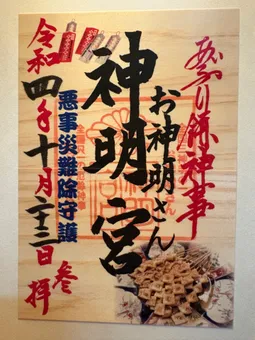 あぶり餅神事
お神明さん
神明宮
悪事災難除守護
令和四年十月二十三日参拝